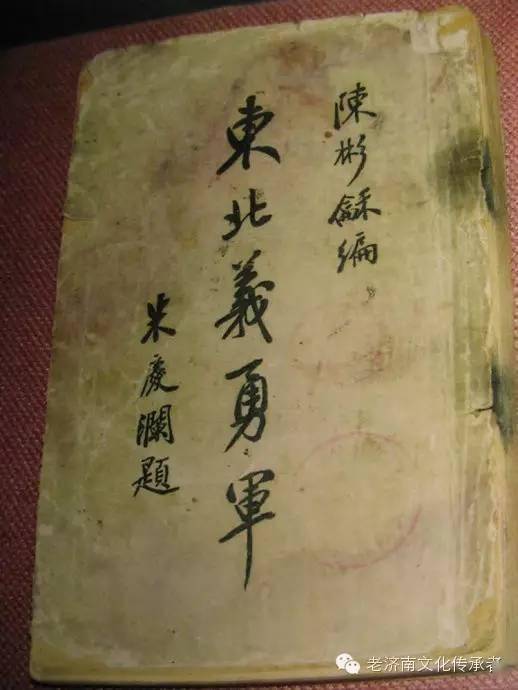 陳彬龢編
東北義勇軍
朱慶瀾題
老济南文化传承者